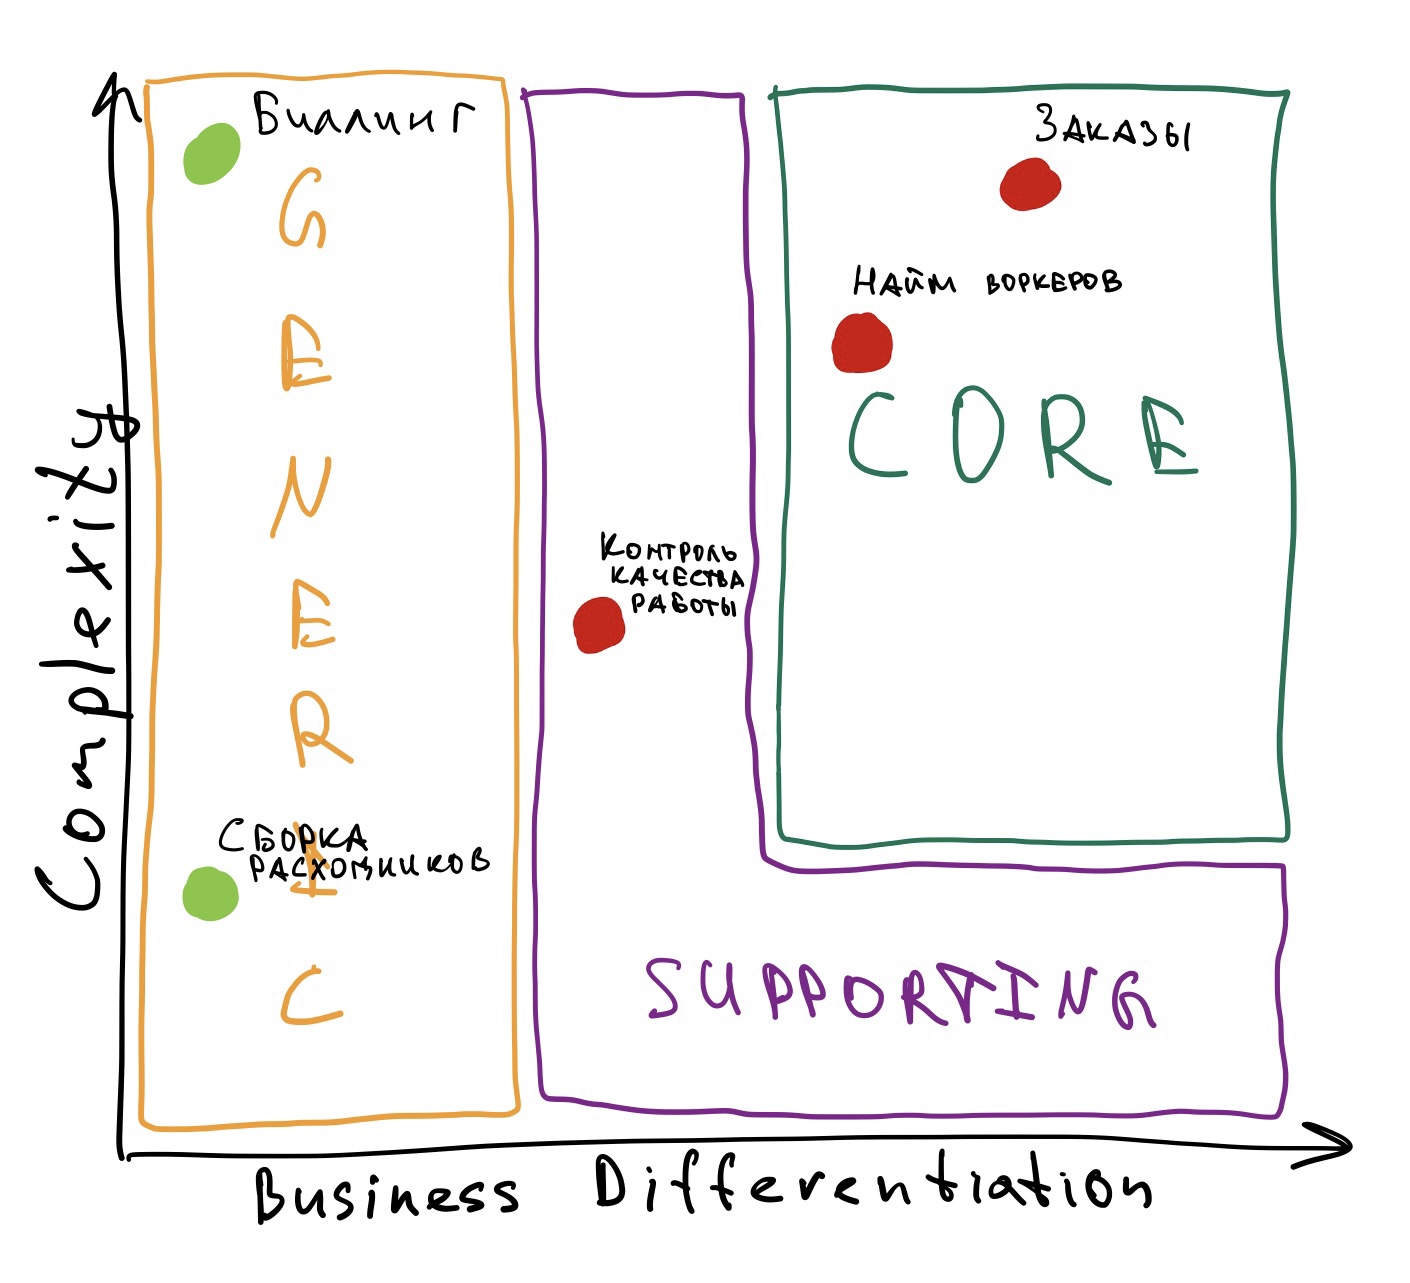 Complexity
Биллинг
GENERIC
Сборка
расходников
Контроль
качества
работы
Заказы
Найм воркеров
CORE
SUPPORTING
Business Differentiation